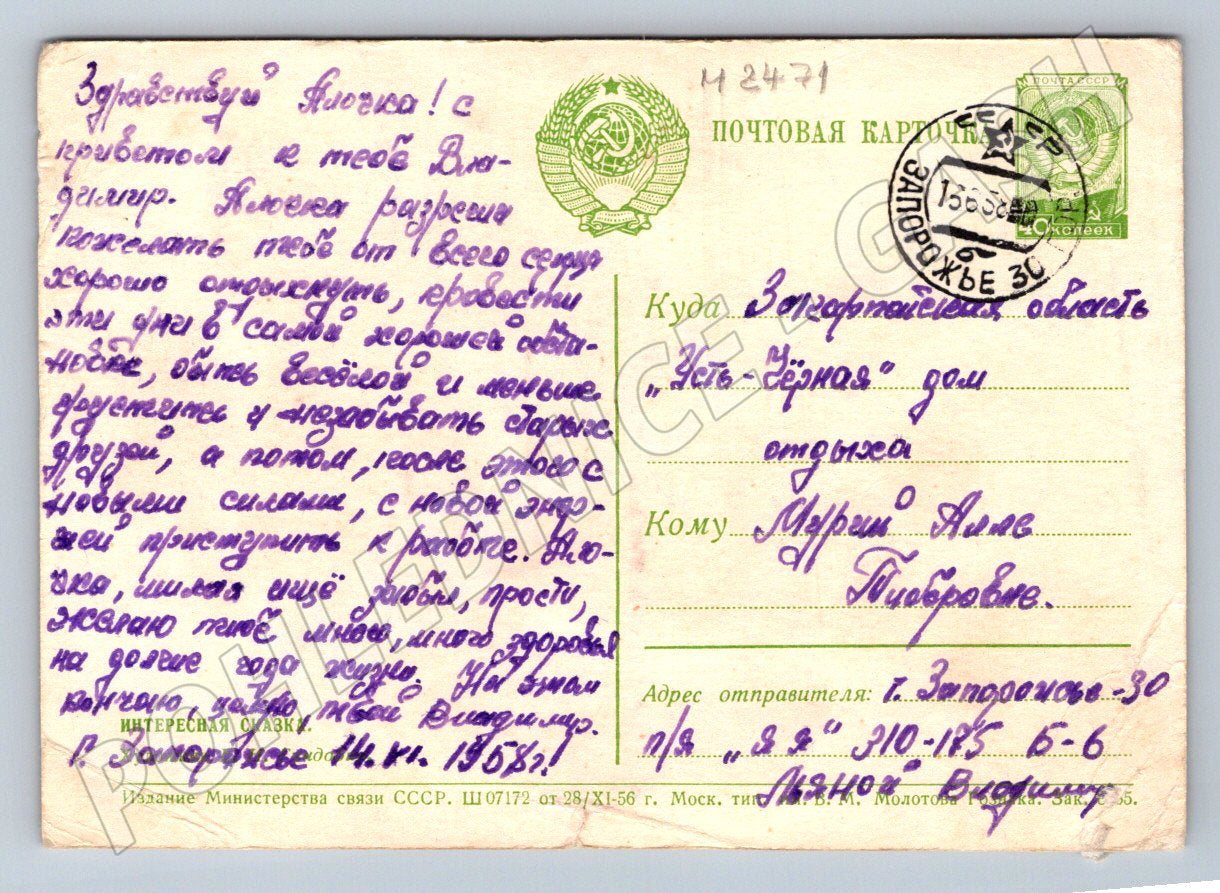 м 2471
ПОЧТА СССР
ПОЧТОВАЯ КАРТОЧКА
40 КОПЕЕК
СССР
ЗАПОРОЖЬЕ 30
Здравствуй Алочка! с
приветом к тебе Вла-
димир. Алочка разреши
пожелать тебе от всего сердца
хорошо отдыхнуть, провести
эти дни в самой хорошей обста-
новке, быть весёлой и меньше
грустить и незабывать старых
друзей, а потом, после этого с
новыми силами, с новой энер-
гией приступить к работе. Ало-
чка, милая ищё забыл, прости,
желаю тебе много, много здоровья
на долгие года жизни. На этом
кончаю, твой Владимир.
г. Запорожье 14. 1958 г.
ИНТЕРЕСНАЯ СКАЗКА.
Издание Министерства связи СССР. Ш 07172 от 28/XI-56 г. Моск. тип. В. М. Молотова Гознака. Зак.
Куда Закарпатская область
„Усть-Чёрная" дом
отдыха
Кому Мурий Алле
Тиборовне.
Адрес отправителя: г. Запорожье-30
п/я „ЯЯ" 310-175 Б-6
Владимир
POHLEDNICE - GACH